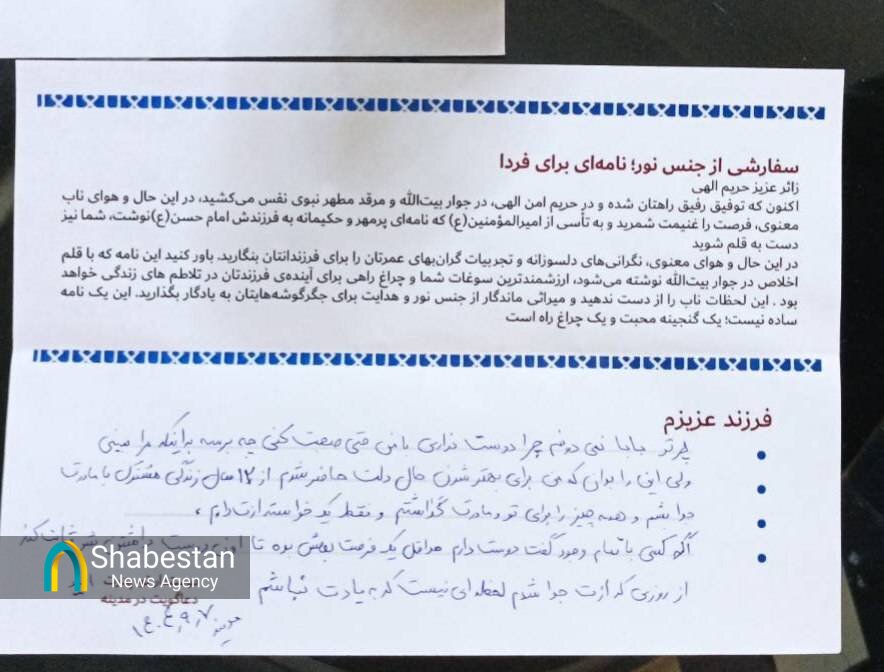 سفارشی از جنس نور؛ نامه‌ای برای فردا
زائر عزیز حریم الهی
اکنون که توفیق رفیق راهتان شده و در حریم امن الهی، در جوار بیت‌الله و مرقد مطهر نبوی نفس می‌کشید، در این حال و هوای ناب
معنوی، فرصت را غنیمت شمرید و به تأسی از امیرالمؤمنین(ع) که نامه‌ای پرمهر و حکیمانه به فرزندش امام حسن(ع)نوشت، شما نیز
دست به قلم شوید
در این حال و هوای معنوی، نگرانی‌های دلسوزانه و تجربیات گران‌بهای عمرتان را برای فرزندانتان بنگارید. باور کنید این نامه که با قلم
اخلاص در جوار بیت‌الله نوشته می‌شود، ارزشمندترین سوغات شما و چراغ راهی برای آینده‌ی فرزندتان در تلاطم های زندگی خواهد
بود . این لحظات ناب را از دست ندهید و میراثی ماندگار از جنس نور و هدایت برای جگرگوشه‌هایتان به یادگار بگذارید. این یک نامه
ساده نیست؛ یک گنجینه محبت و یک چراغ راه است
فرزند عزیزم
بابا نمی دونم چرا دوست نداری با من حتی صحبت کنی چه برسه براینکه مرا ببینی
ولی این را بدان که من برای بهتر شدن حال دلت حاضر شدم از ۱۲ سال زندگی مشترک با مادرت
جدا بشم و همه چیز را برای تو و مادرت گذاشتم و فقط یک خواسته ازت دارم ،
اگه کسی با تمام وجود گفت دوست دارم حداقل یک فرصت بهش بده تا
از روزی که ازت جدا شدم لحظه ای نیست که به یادت نباشم
دعاگویت در مدینه
Shabestan
News Agency